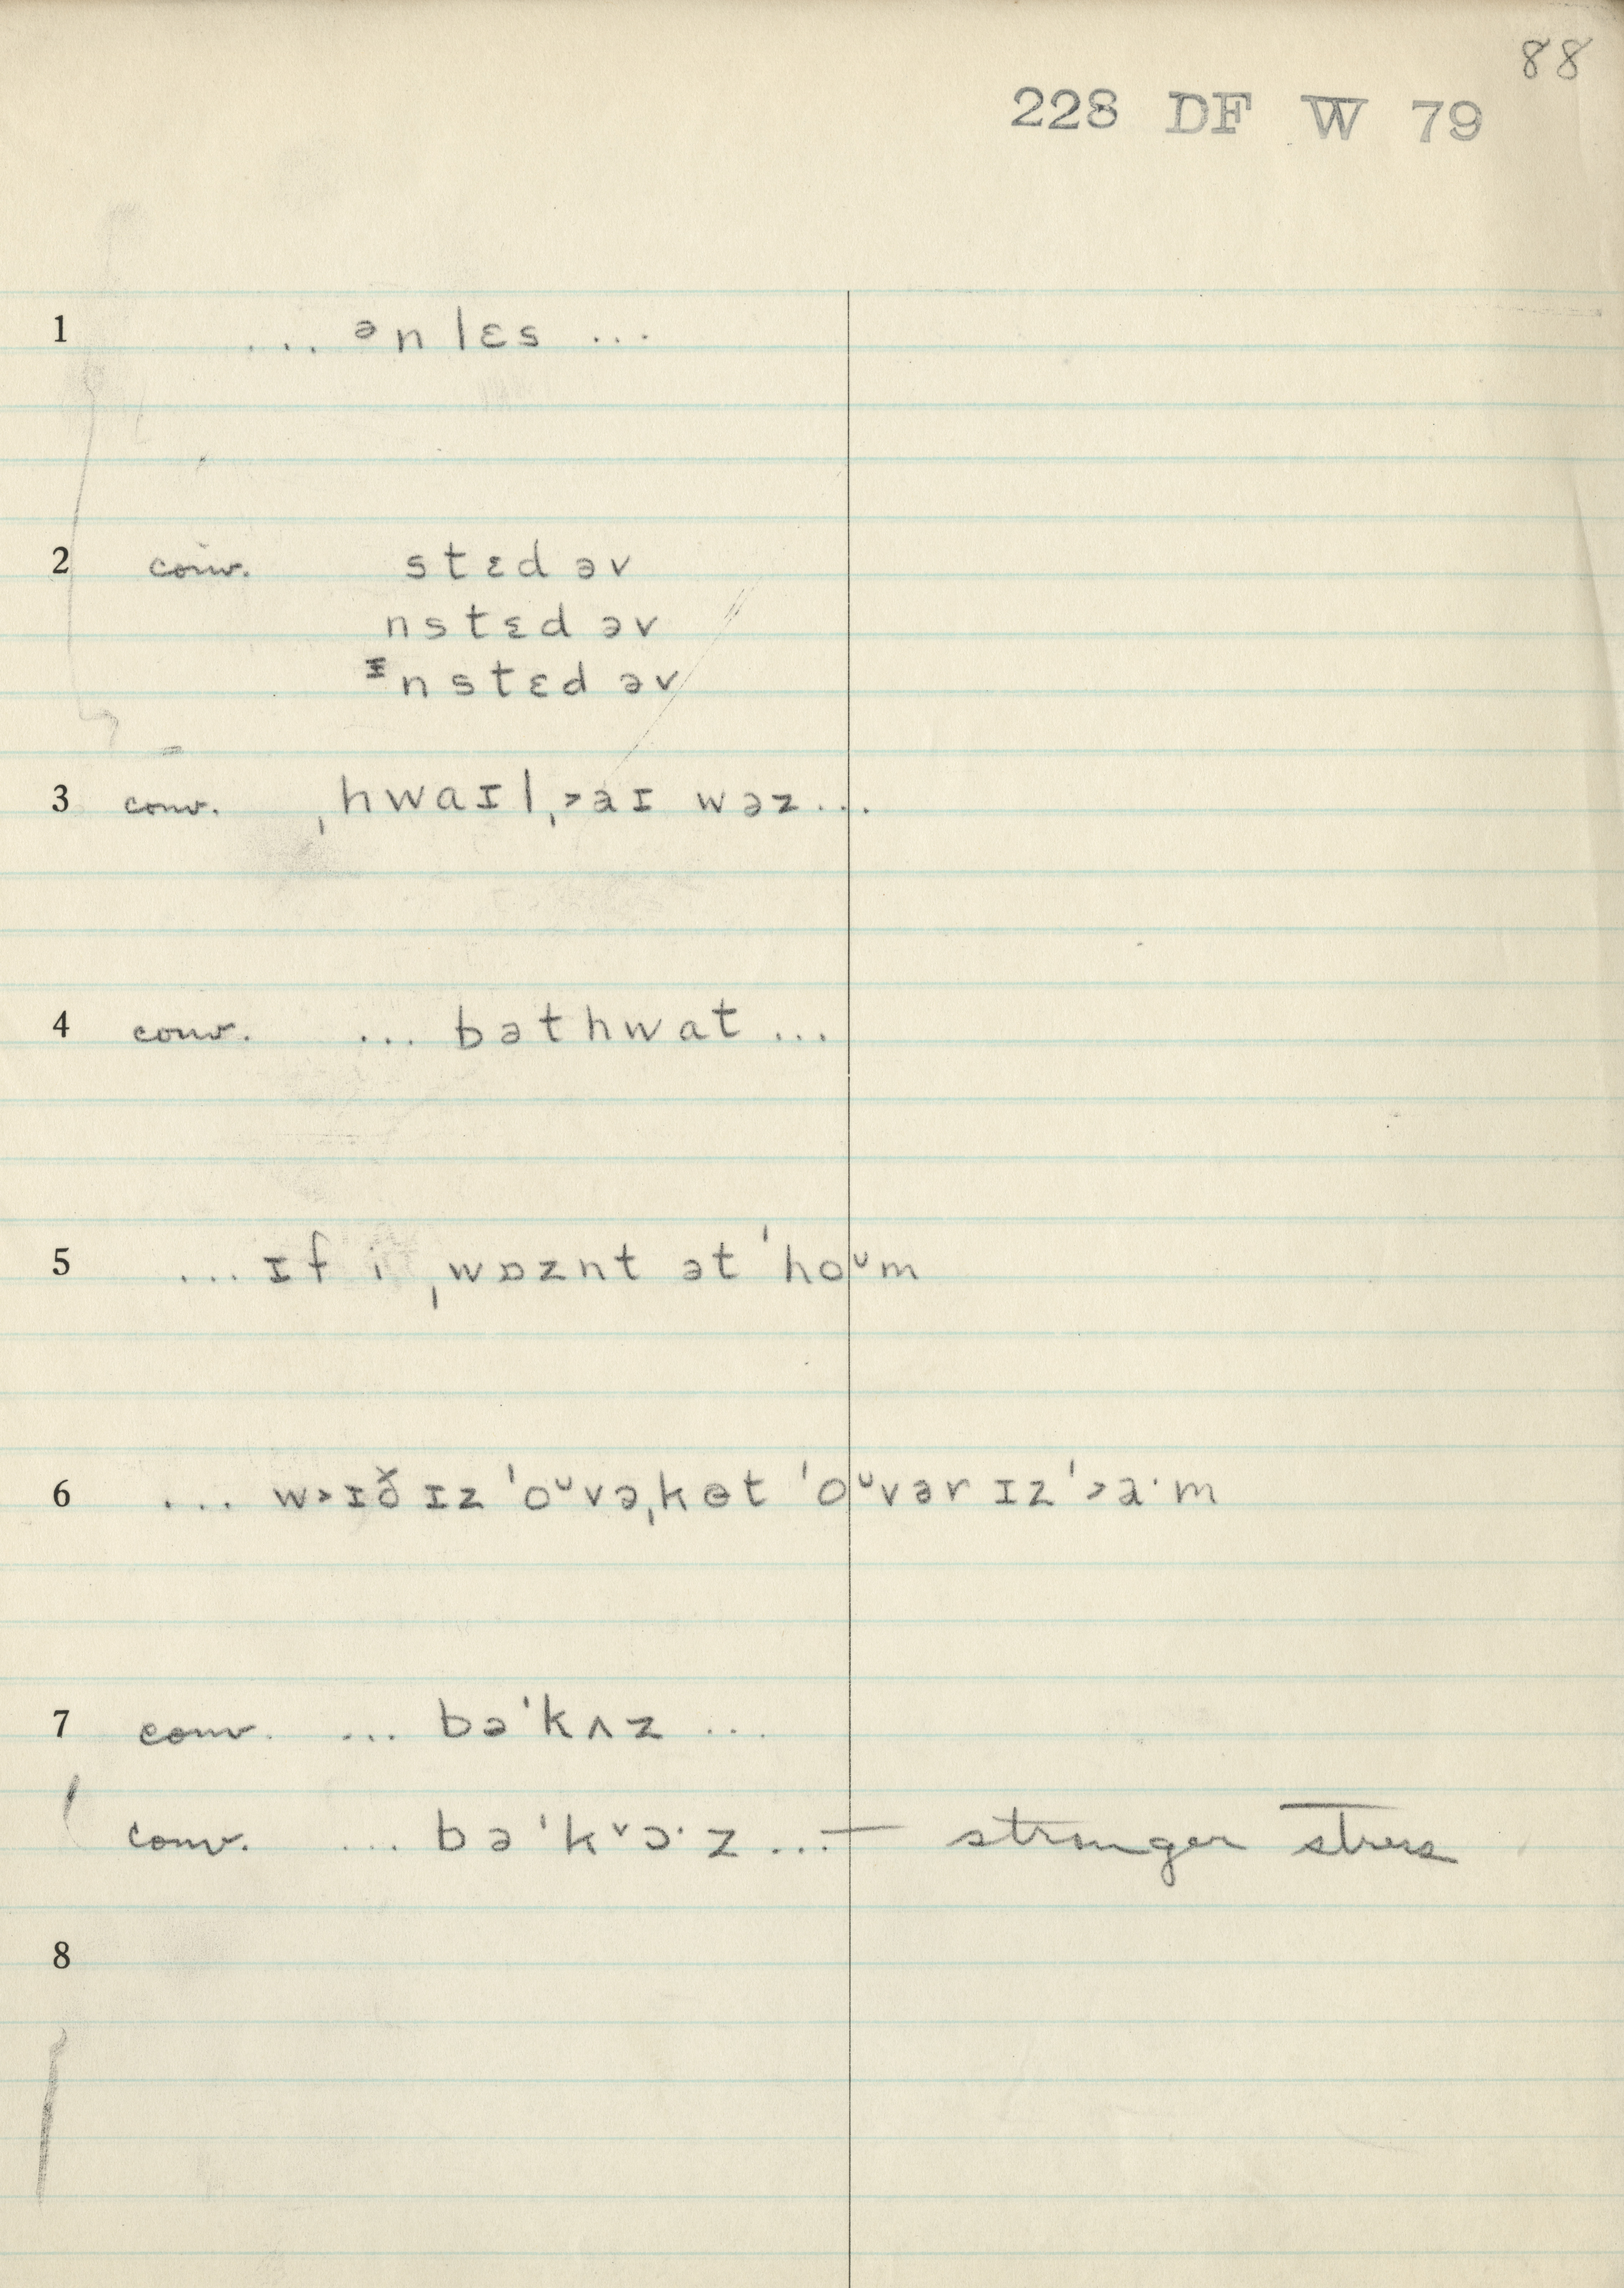 88
228 DF W 79
1 ... ᵊnlɛs ...
2 conv. stɛd əv
nstɛd əv
ᶦnstɛd əv
3 conv. ˌhwaɪlˌ˃aɪ wəz...
4 conv. ... bəthwat ...
5 ... ɪf i ˌwɒznt ət ˈhoᵘm
6 ... w˃ɪð ɪz ˈoᵘvəˌkɵt ˈoᵘvər ɪz ˈ˃a·m
7 conv. ... bəˈkʌz ...
conv. ... bəˈk˅ɔ·z ...— stronger stress
8